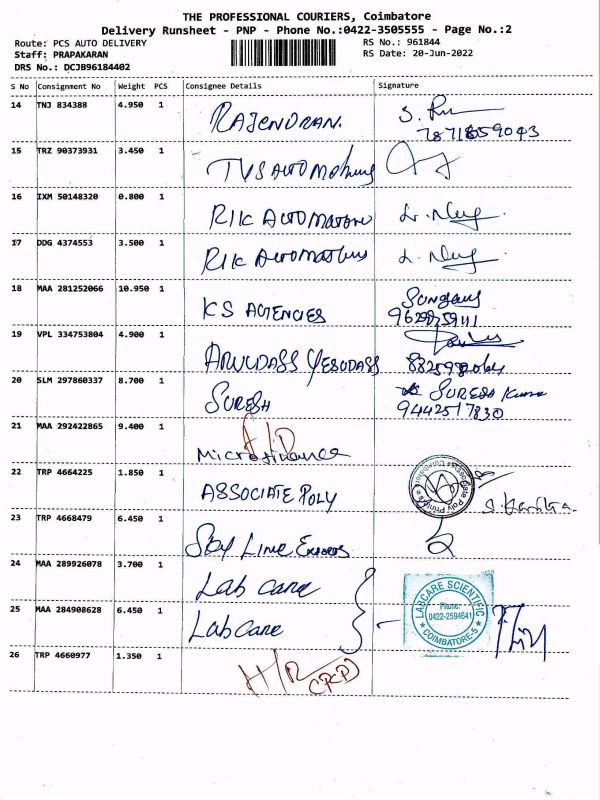 THE PROFESSIONAL COURIERS, Coimbatore
Delivery Runsheet - PNP - Phone No.:0422-3505555 - Page No.:2
Route: PCS AUTO DELIVERY RS No.: 961844
Staff: PRAPAKARAN RS Date: 20-Jun-2022
DRS No.: DCJB96184402
S No Consignment No Weight PCS Consignee Details Signature
14 TNJ 834388 4.950 1 RAJENDRAN.
7871859043
15 TRZ 90373931 3.450 1 TVS
16 IXM 50148320 0.800 1
17 DDG 4374553 3.500 1
18 MAA 281252066 10.950 1 KS AGENCIES
19 VPL 334753804 4.900 1 ARULDASS YESUDASS
20 SLM 297860337 8.700 1 SURESH SURESH Kumar
9442517830
21 MAA 292422865 9.400 1 Microfinance
22 TRP 4664225 1.850 1 ASSOCIATE POLY
23 TRP 4668479 6.450 1 Sky Line Exports
24 MAA 289926078 3.700 1 Lab care
25 MAA 284908628 6.450 1 Lab care
LABCARE SCIENTIFIC
Phone:
0422-2594641
COIMBATORE-5
26 TRP 4660977 1.350 1 H/R